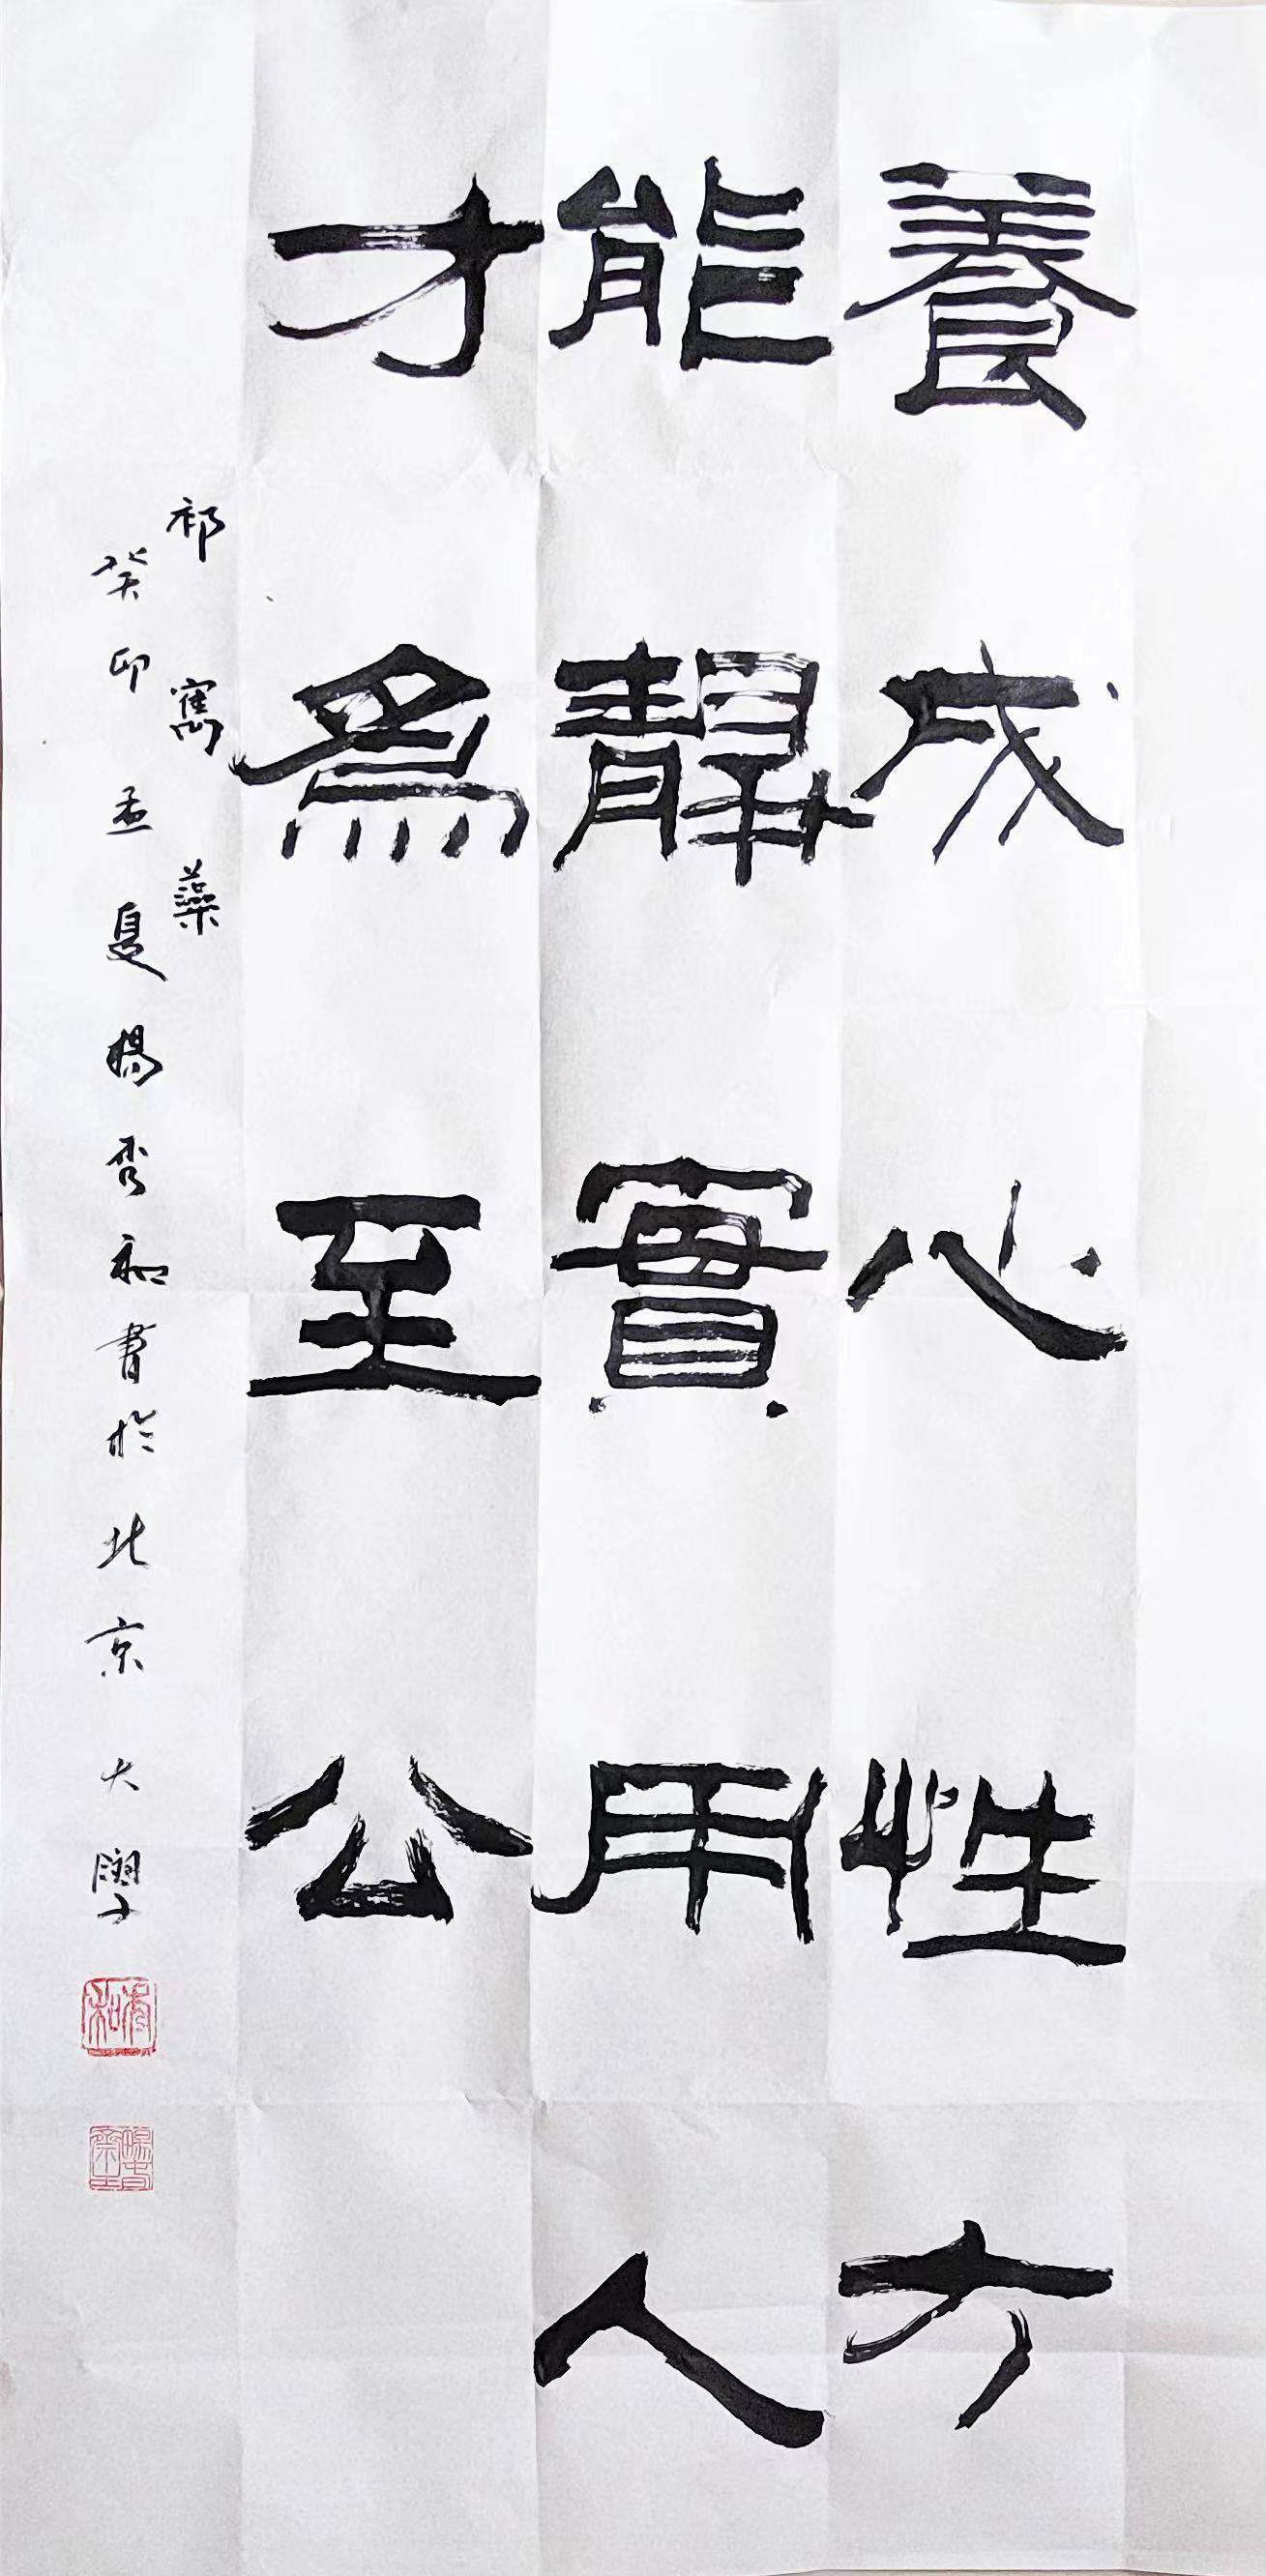 養成心性方
能靜實用人
才為至公
祁寯藻
癸卯孟夏楊秀和書於北京大學